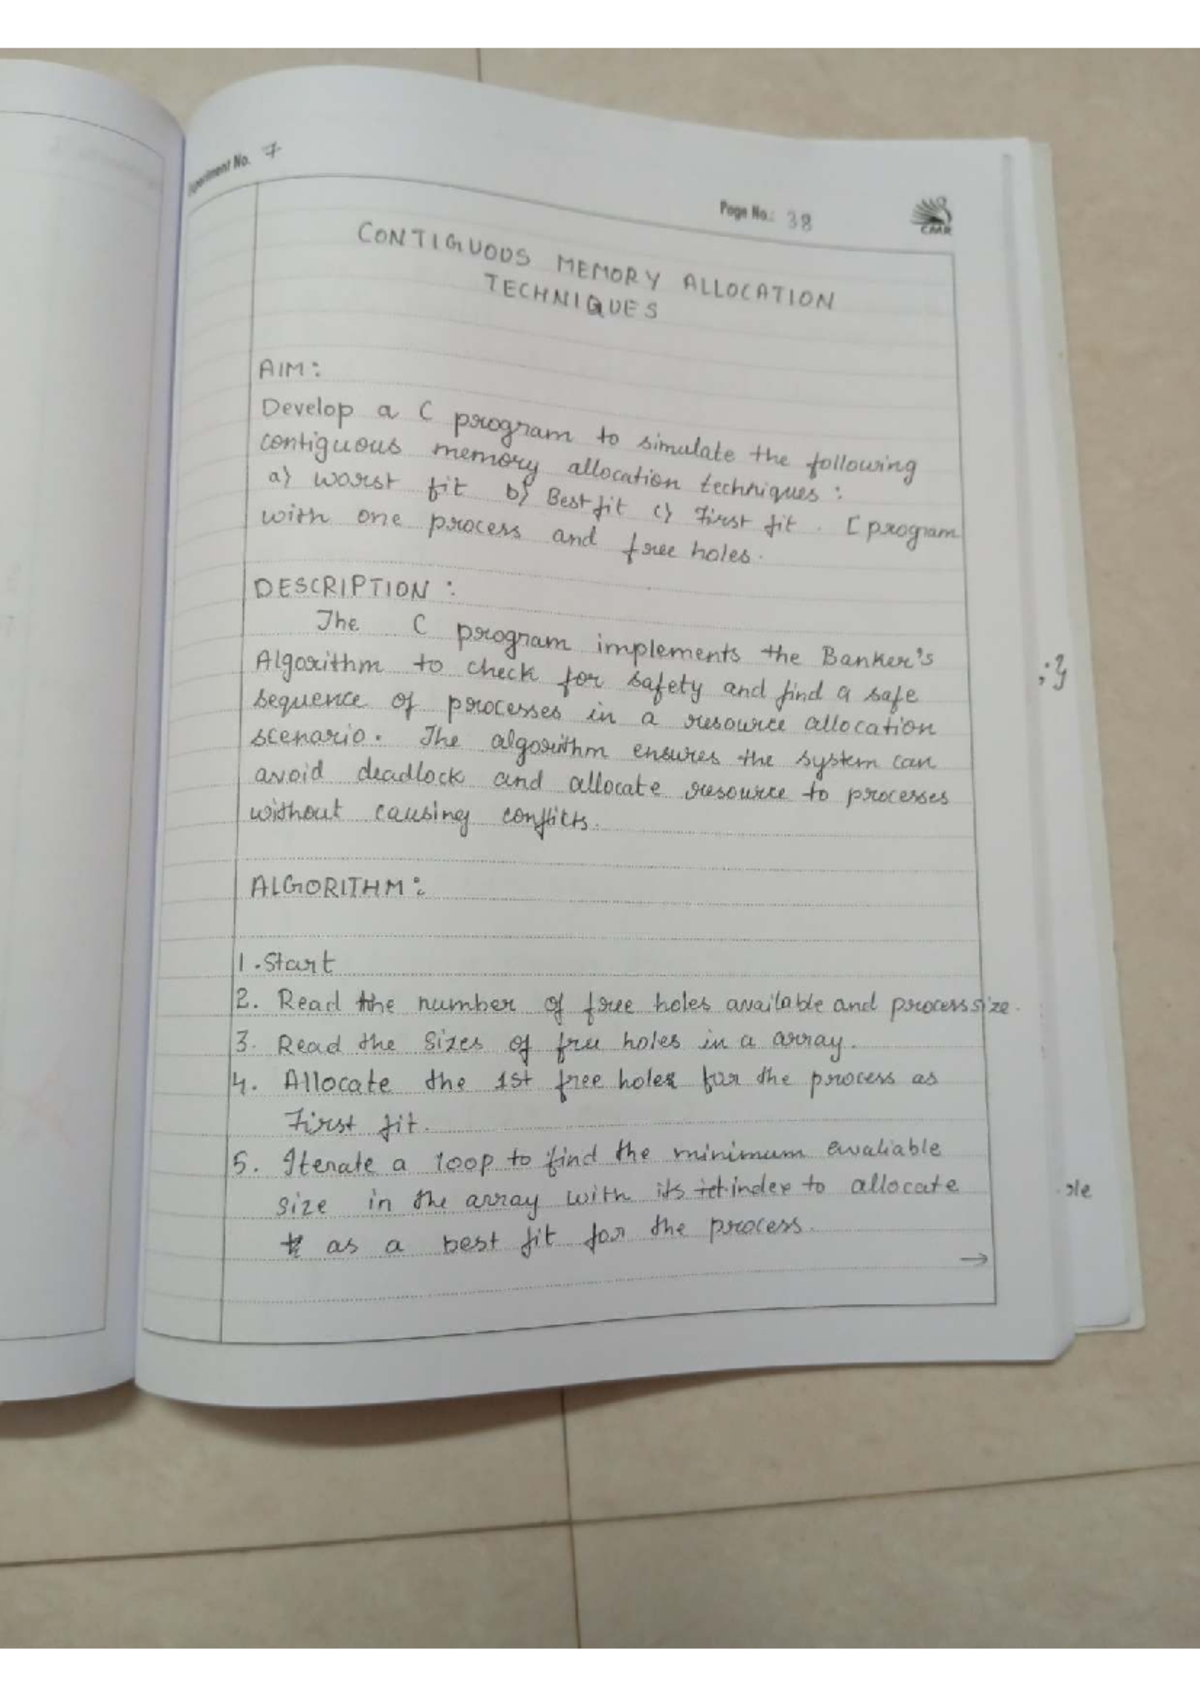 Experiment No. 7
Page No.: 38
CMR
CONTIGUOUS MEMORY ALLOCATION
TECHNIQUES
AIM:
Develop a C program to simulate the following
contiguous memory allocation techniques:
a) worst fit b) Best fit c) First fit. [program
with one process and free holes.
DESCRIPTION:
The C program implements the Banker's
Algorithm to check for safety and find a safe
sequence of processes in a resource allocation
scenario. The algorithm ensures the system can
avoid deadlock and allocate resource to processes
without causing conflicts.
ALGORITHM:
1. Start
2. Read the number of free holes available and process size.
3. Read the sizes of free holes in a array.
4. Allocate the 1st free holes for the process as
First fit.
5. Iterate a loop to find the minimum avaliable
size in the array with its index to allocate
as a best fit for the process.
→
;}